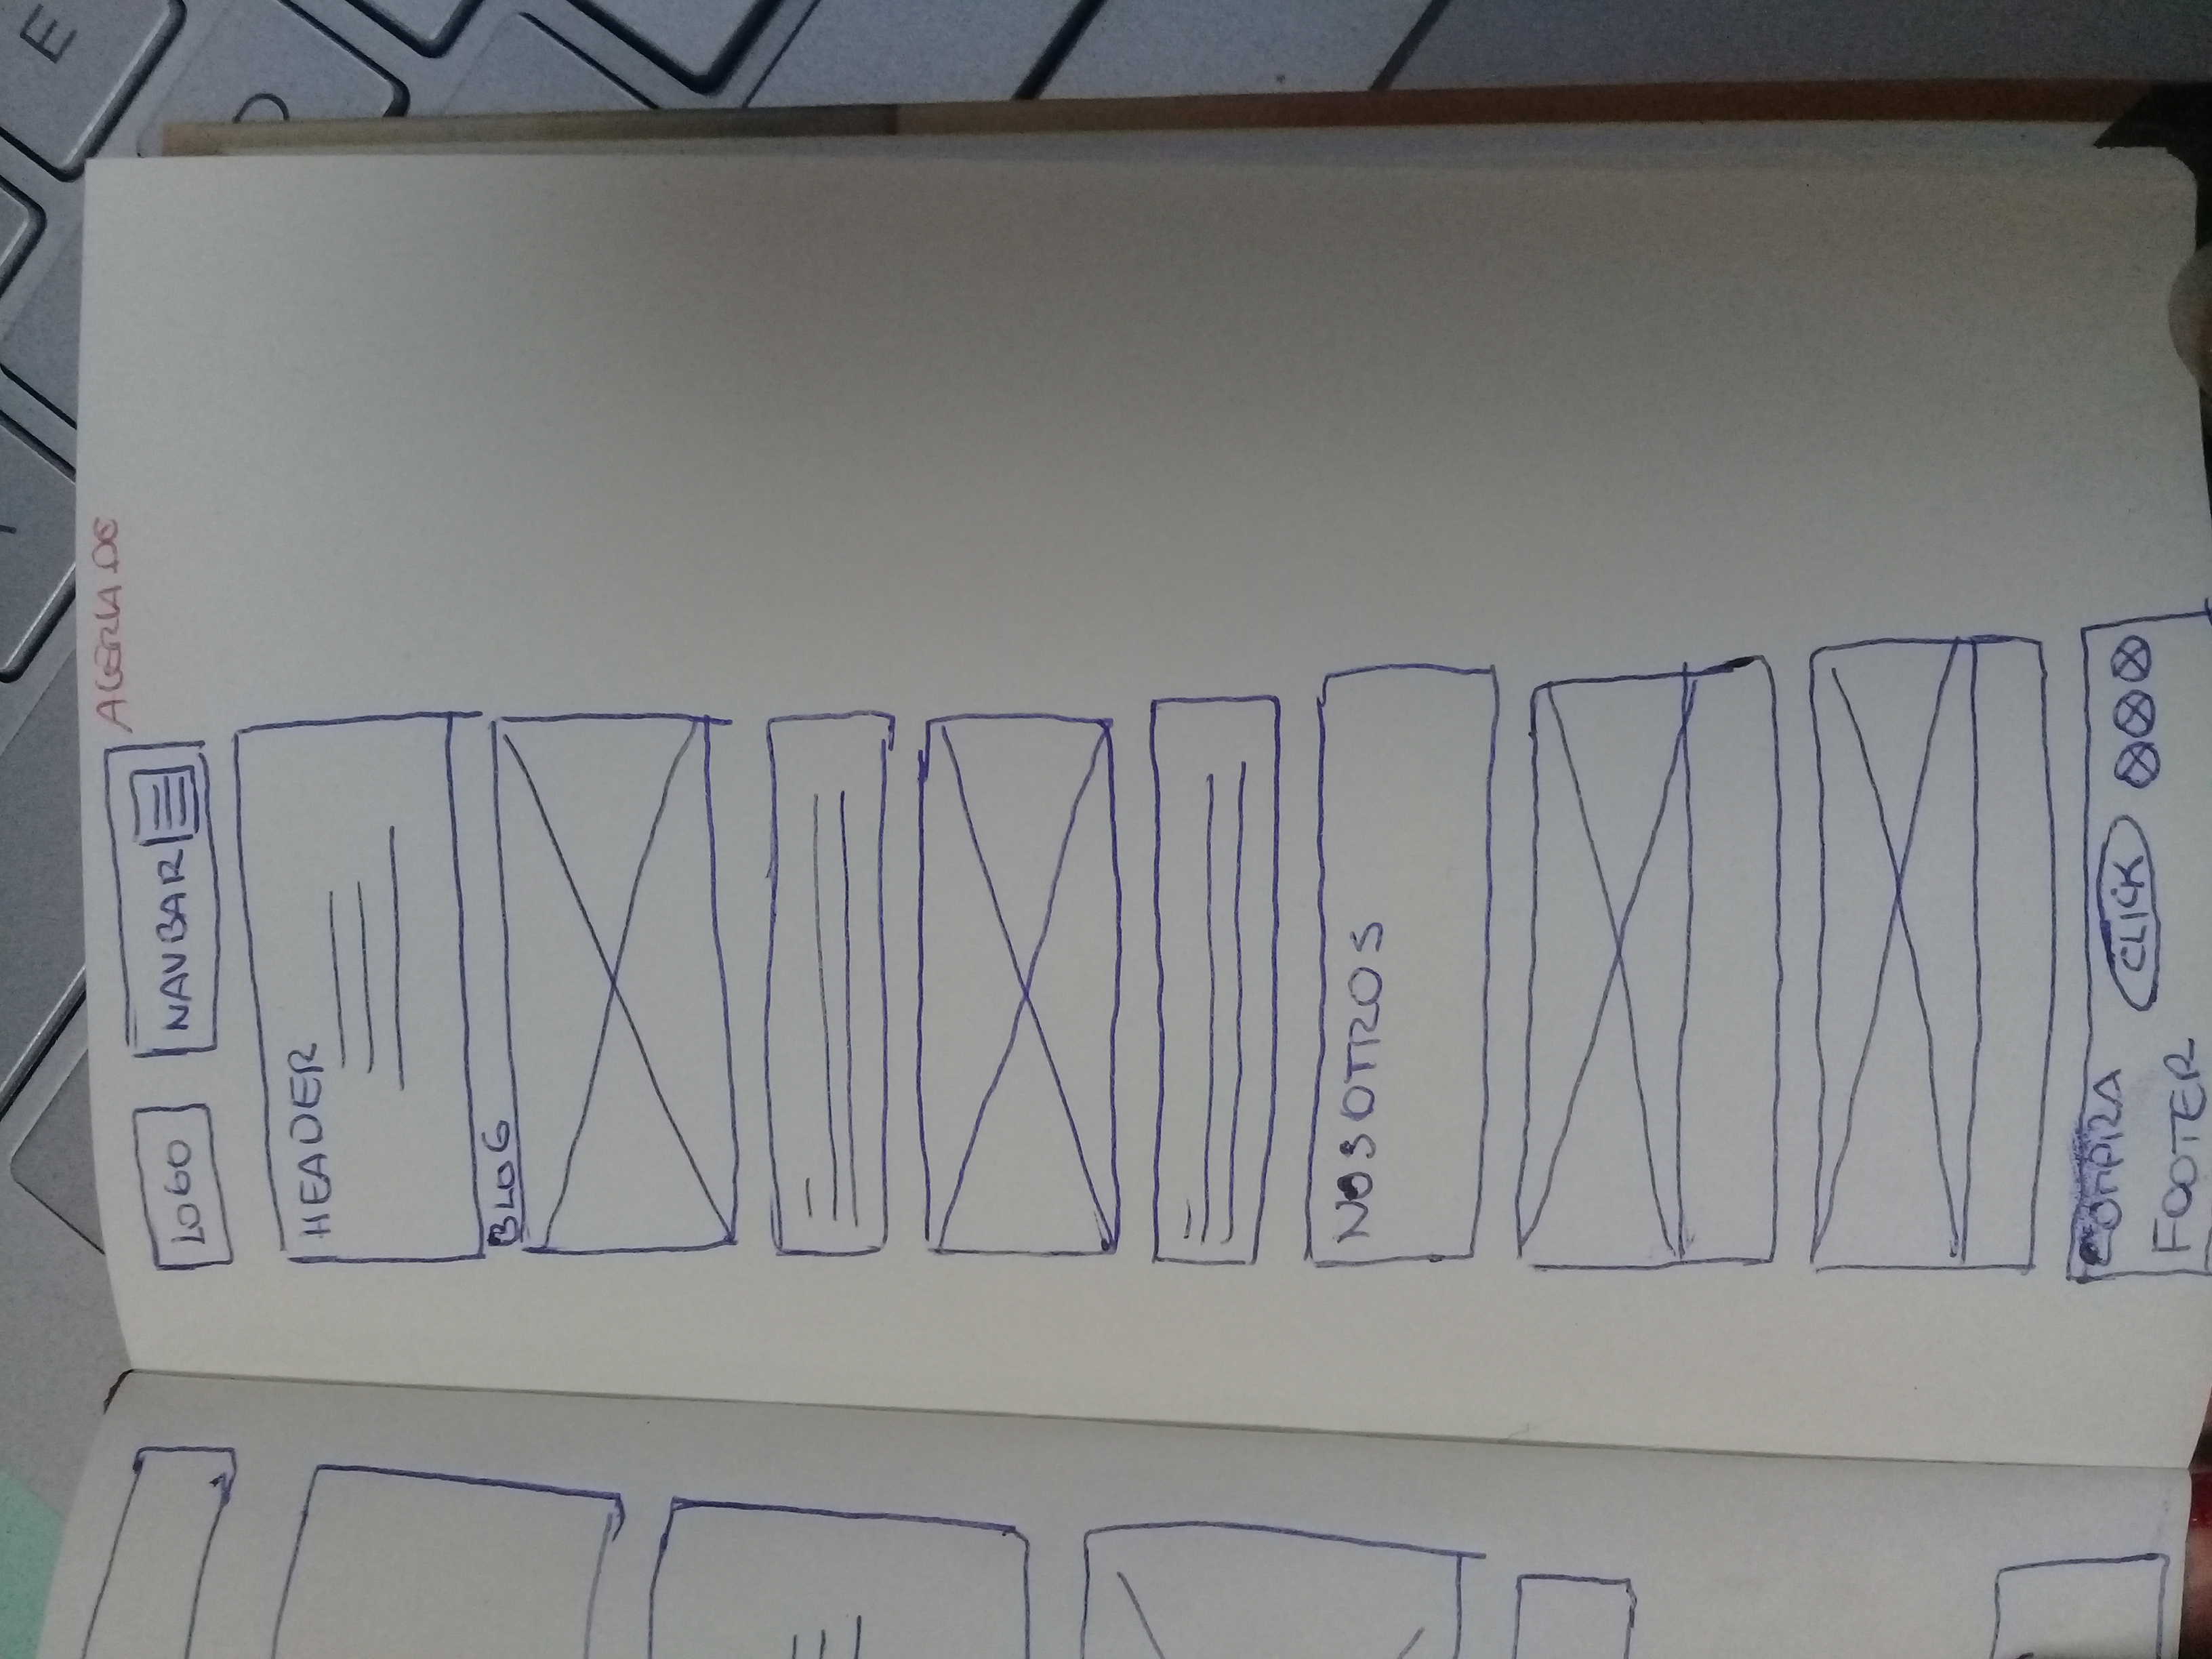 ACERCA DE
LOGO
NAVBAR
HEADER
BLOG
NOSOTROS
COMPRA
CLICK
FOOTER
E